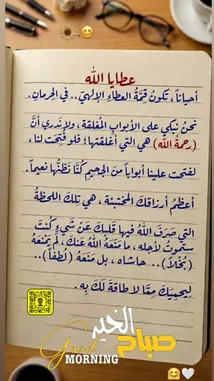 عطايا الله
أحياناً، تكون قمّة العطاء الإلهيّ.. في الحِرمانِ.
نحنُ نبكي على الأبوابِ المُغلقةِ، ولا ندري أنَّ
(رحمةَ الله) هي التي أغلقتها؛ فلو فُتِحَت لنا،
لفتحت علينا أبواباً من الجحيمِ كُنّا نظنُّها نعيماً.
أعظمُ أرزاقك المختبئة، هي تلك اللحظةُ
التي صَرَفَ اللهُ فيها قلبكَ عَنْ شيءٍ كُنْتَ
ستموتُ لأجله، ما مَنَعَهُ اللهُ عَنكَ، لَمْ يَمْنَعْهُ
(بُخْلاً)... حاشاه، بل منَعَهُ (لُطفاً)..
لِيحميَكَ مِمَّا لا طاقةَ لكَ بِهِ.
صباح الخير
Good
MORNING